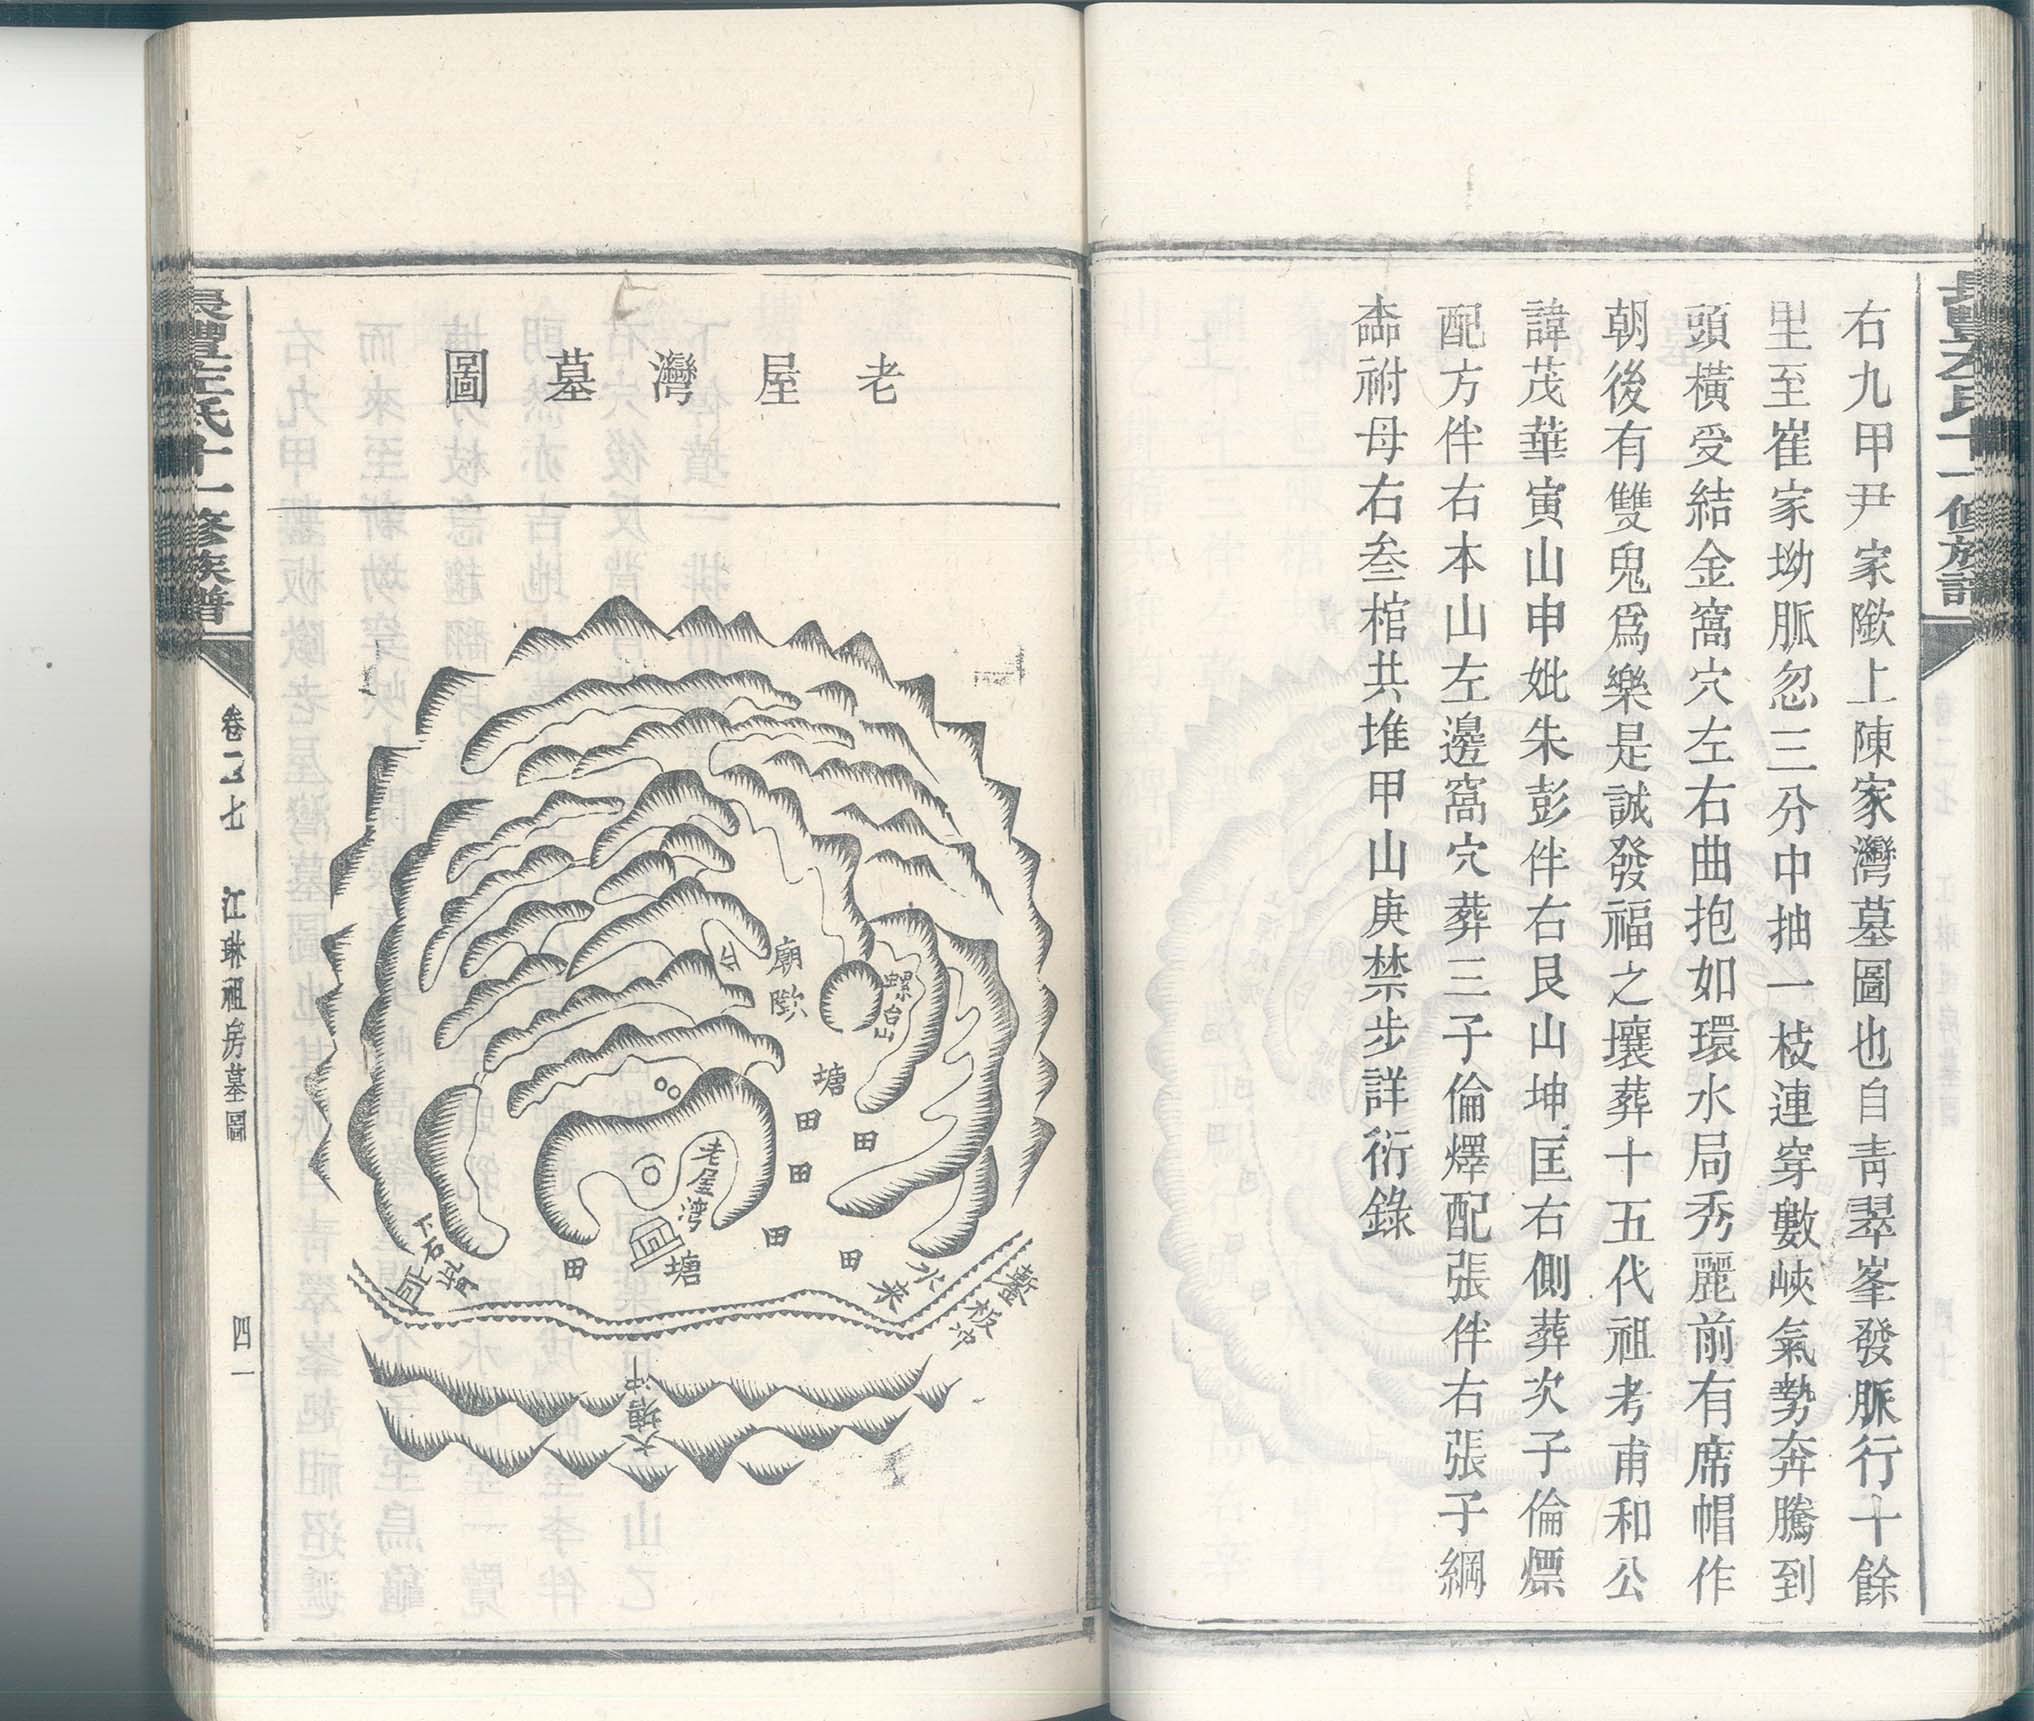 長豐左氏十一修族譜
右九甲尹家㘭上陳家灣墓圖也自靑翠峯發脈行十餘
里至崔家坳脈忽三分中抽一枝連穿數峽氣勢奔騰到
頭橫受結金窩穴左右曲抱如環水局秀麗前有席帽作
朝後有雙鬼爲樂是誠發福之壤葬十五代祖考甫和公
諱茂華寅山申妣朱彭伴右艮山坤匡右側葬次子倫熛
配方伴右本山左邊窩穴葬三子倫燡配張伴右張子綱
祔母右叁棺共堆甲山庚禁步詳衍錄
老屋灣墓圖
廟
螺台山
塘
田
田
田
田
田
田
老屋湾
塘
水來
鏨板冲
下石
大塘冲
長豐左氏十一修族譜
卷二七
江琳祖房墓圖
四一